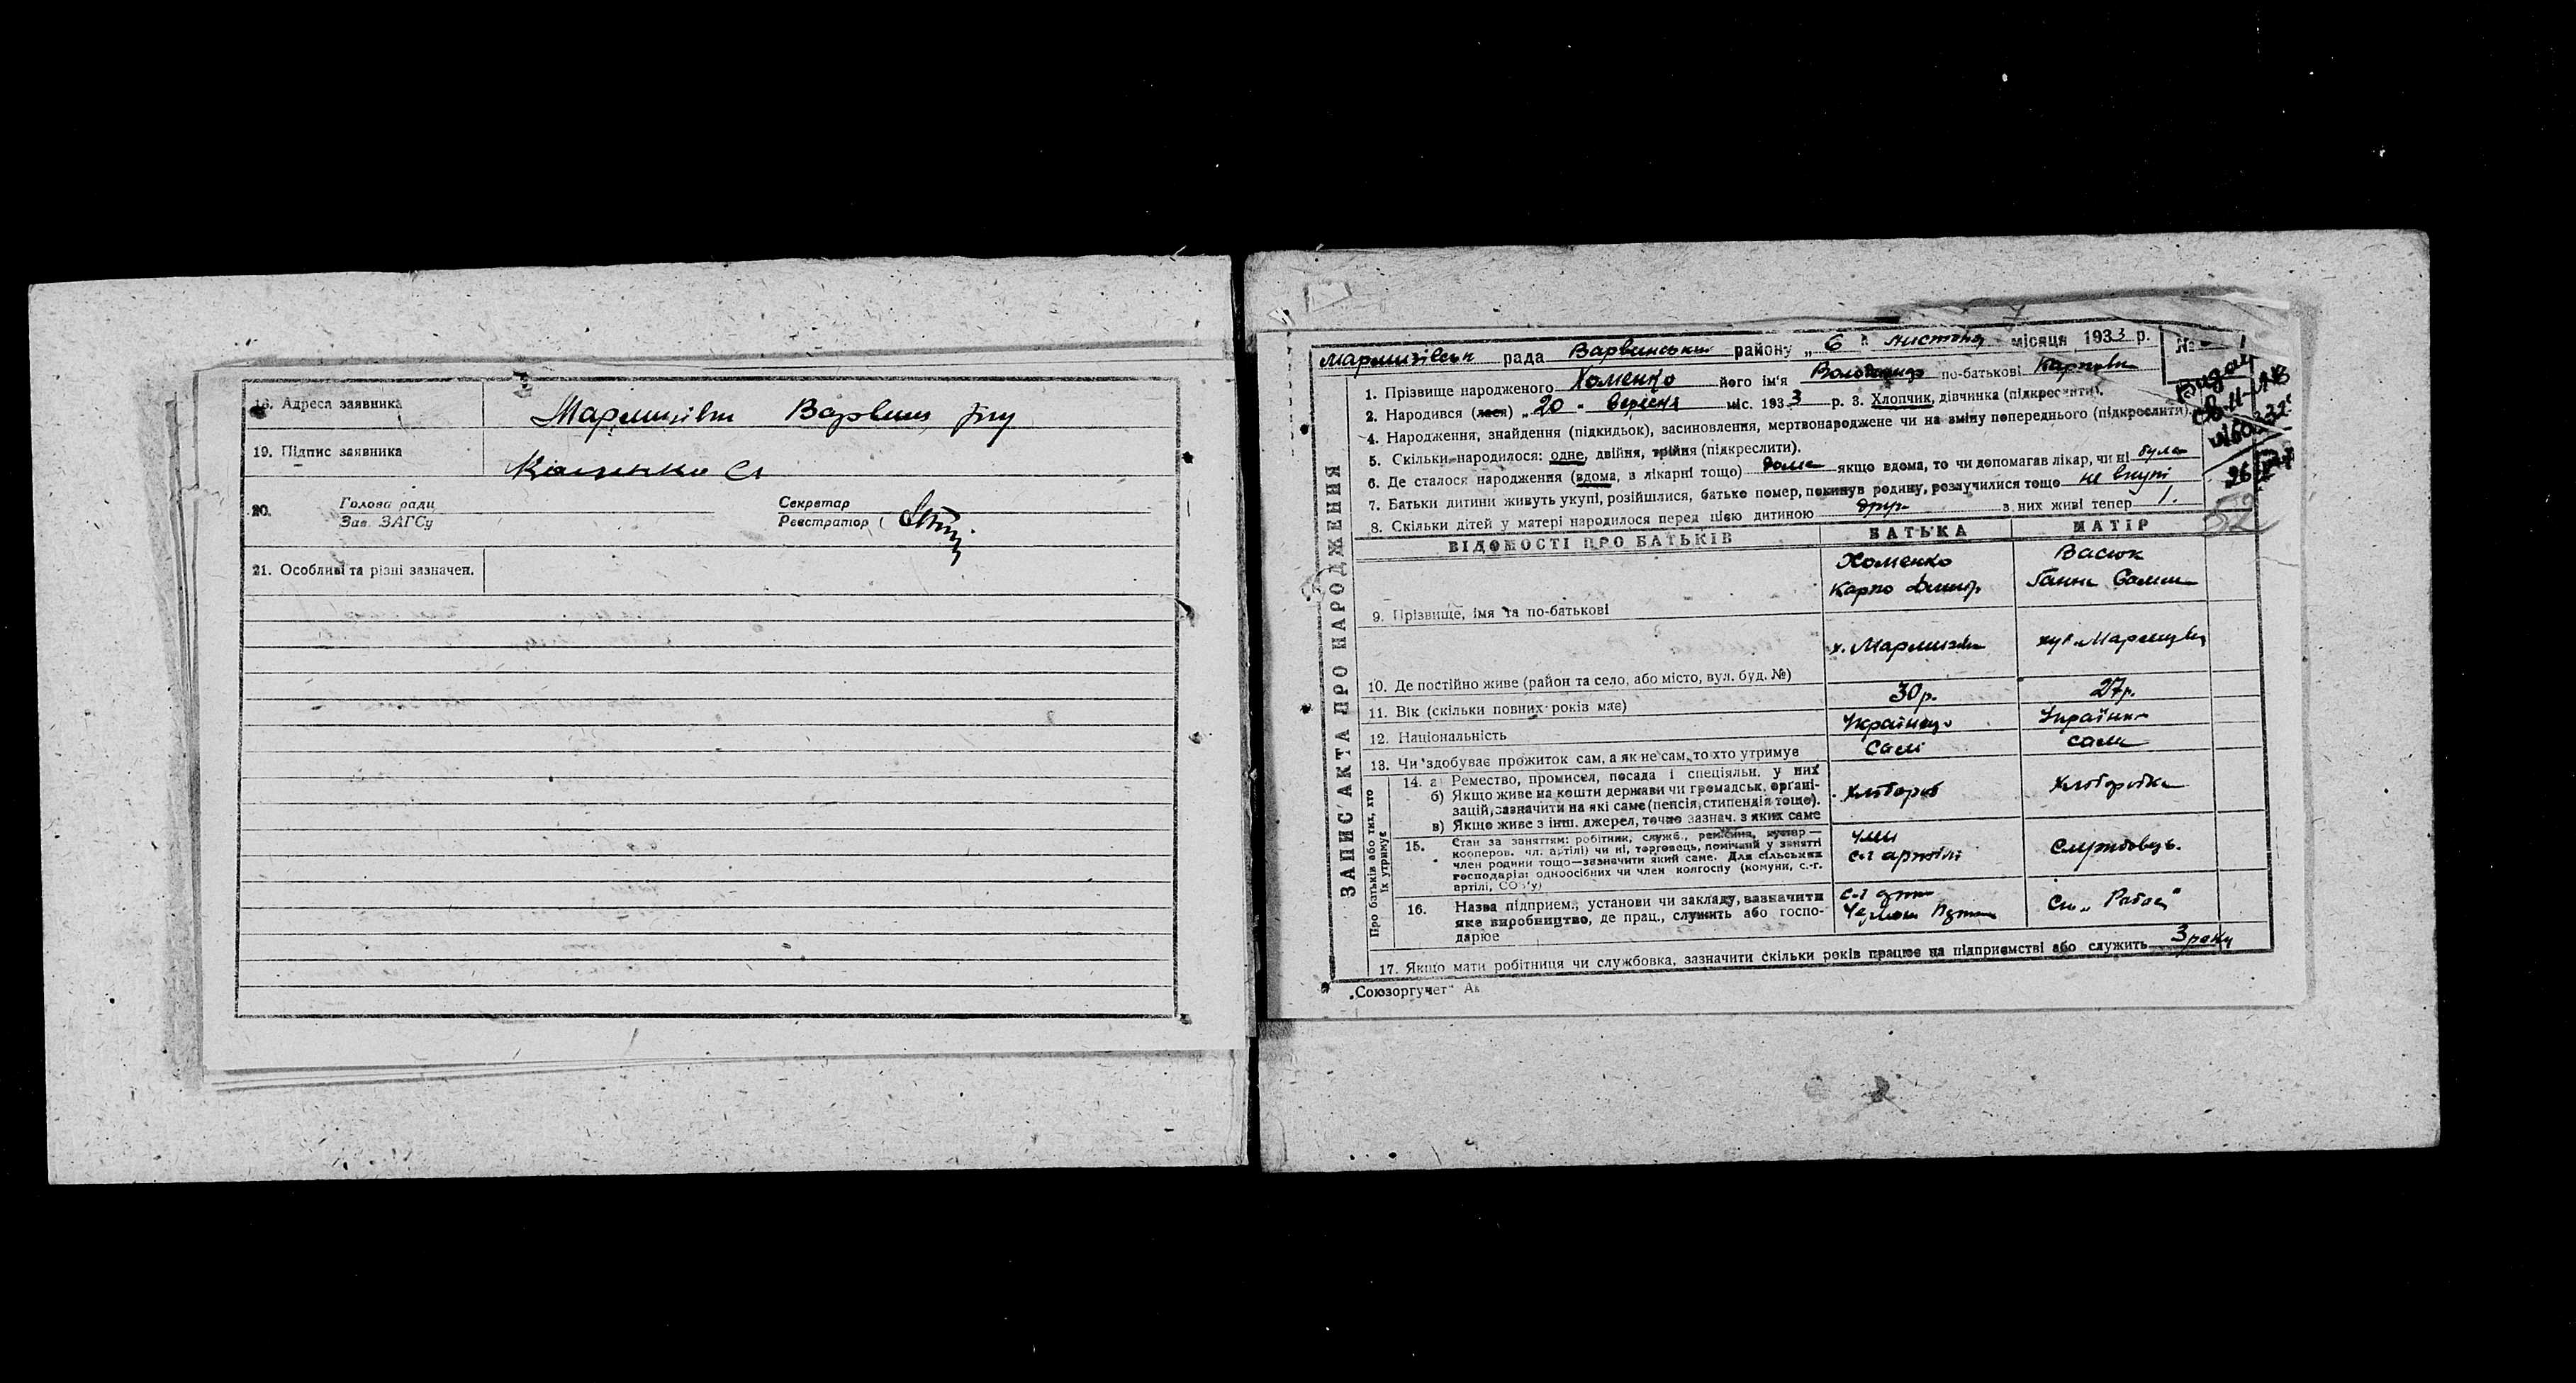 18. Адреса заявника
Варвин р-ну
19. Підпис заявника
20. Голова ради Секретар
Зав. ЗАГСу Реєстратор
21. Особливі та різні зазначен.
ЗАПИС АКТА ПРО НАРОДЖЕННЯ
рада Варвинський району „6“ листопад місяця 1933 р. №
1. Прізвище народженого Хоменко його ім'я Володимир по-батькові Карпови
2. Народився (лася) „20“ вересня міс. 1933 р. 3. Хлопчик, дівчинка (підкреслити).
4. Народження, знайдення (підкидьок), засиновлення, мертвонароджене чи на зміну попереднього (підкреслити).
5. Скільки народилося: одне, двійня, трійня (підкреслити).
6. Де сталося народження (вдома, в лікарні тощо) дома якщо вдома, то чи допомагав лікар, чи ні була
7. Батьки дитини живуть укупі, розійшлися, батько помер, покинув родину, розлучилися тощо не вкупі
8. Скільки дітей у матері народилося перед цією дитиною друг. з них живі тепер 1.
Видан
52
ВІДОМОСТІ ПРО БАТЬКІВ БАТЬКА МАТІР
Хоменко Васюк
Карпо Ганна
9. Прізвище, імя та по-батькові
10. Де постійно живе (район та село, або місто, вул. буд. №)
11. Вік (скільки повних років має) 30 р. 27 р.
12. Національність Українець Українка
13. Чи здобуває прожиток сам, а як не сам, то хто утримує самі сама
Про батьків або тих, хто їх утримує
14. а) Ремество, промисел, посада і спеціяльн. у них
б) Якщо живе на кошти держави чи громадськ. органі-
зацій, зазначити на які саме (пенсія, стипендія тощо).
в) Якщо живе з інш. джерел, точно зазнач. з яких саме
хлібороб хліборобка
15. Стан за заняттям: робітник, служб., ремісник, кустар—
кооперов. чл. артілі) чи ні, торговець, помічний у занятті
член родини тощо—зазначити який саме. Для сільських
господарів: одноосібних чи член колгоспу (комуни, с.-г.
артілі, СОЗ'у)
член
с-г артілі службовець.
16. Назва підприєм., установи чи закладу, зазначити
яке виробництво, де прац., служить або госпо-
дарює
17. Якщо мати робітниця чи службовка, зазначити скільки років працює на підприємстві або служить 3 роки
„Союзоргучет“